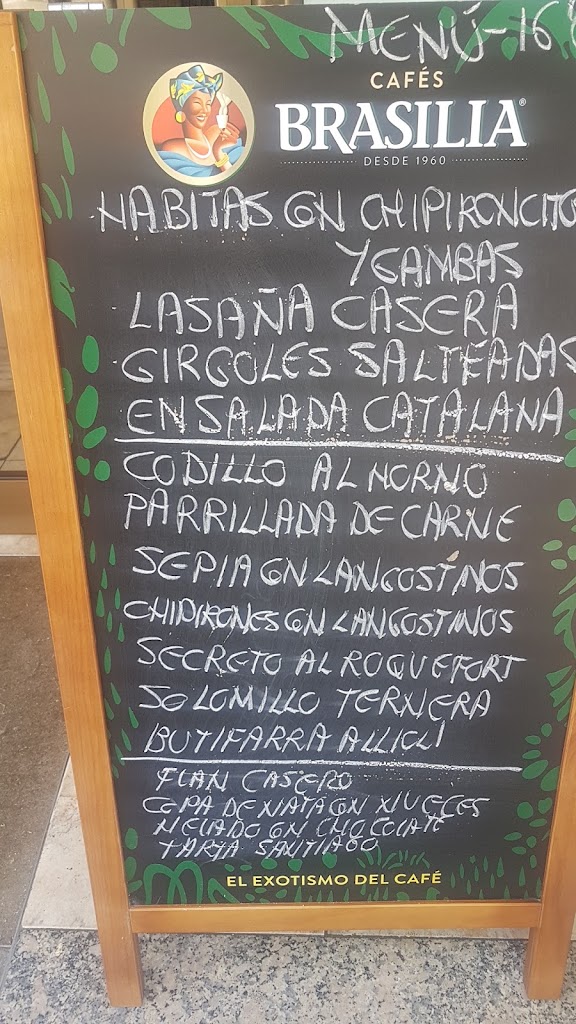 MENÚ-16
CAFÉS
BRASILIA®
DESDE 1960
HABITAS CON CHIPIRONCITO
Y GAMBAS
LASAÑA CASERA
GIRGOLES SALTEADAS
ENSALADA CATALANA
CODILLO AL HORNO
PARRILLADA DE CARNE
SEPIA CON LANGOSTINOS
CHIPIRONES CON LANGOSTINOS
SECRETO AL ROQUEFORT
SOLOMILLO TERNERA
BUTIFARRA ALLIOLI
FLAN CASERO
COPA DE NATA CON NUECES
HELADO CON CHOCOLATE
TARTA SANTIAGO
EL EXOTISMO DEL CAFÉ